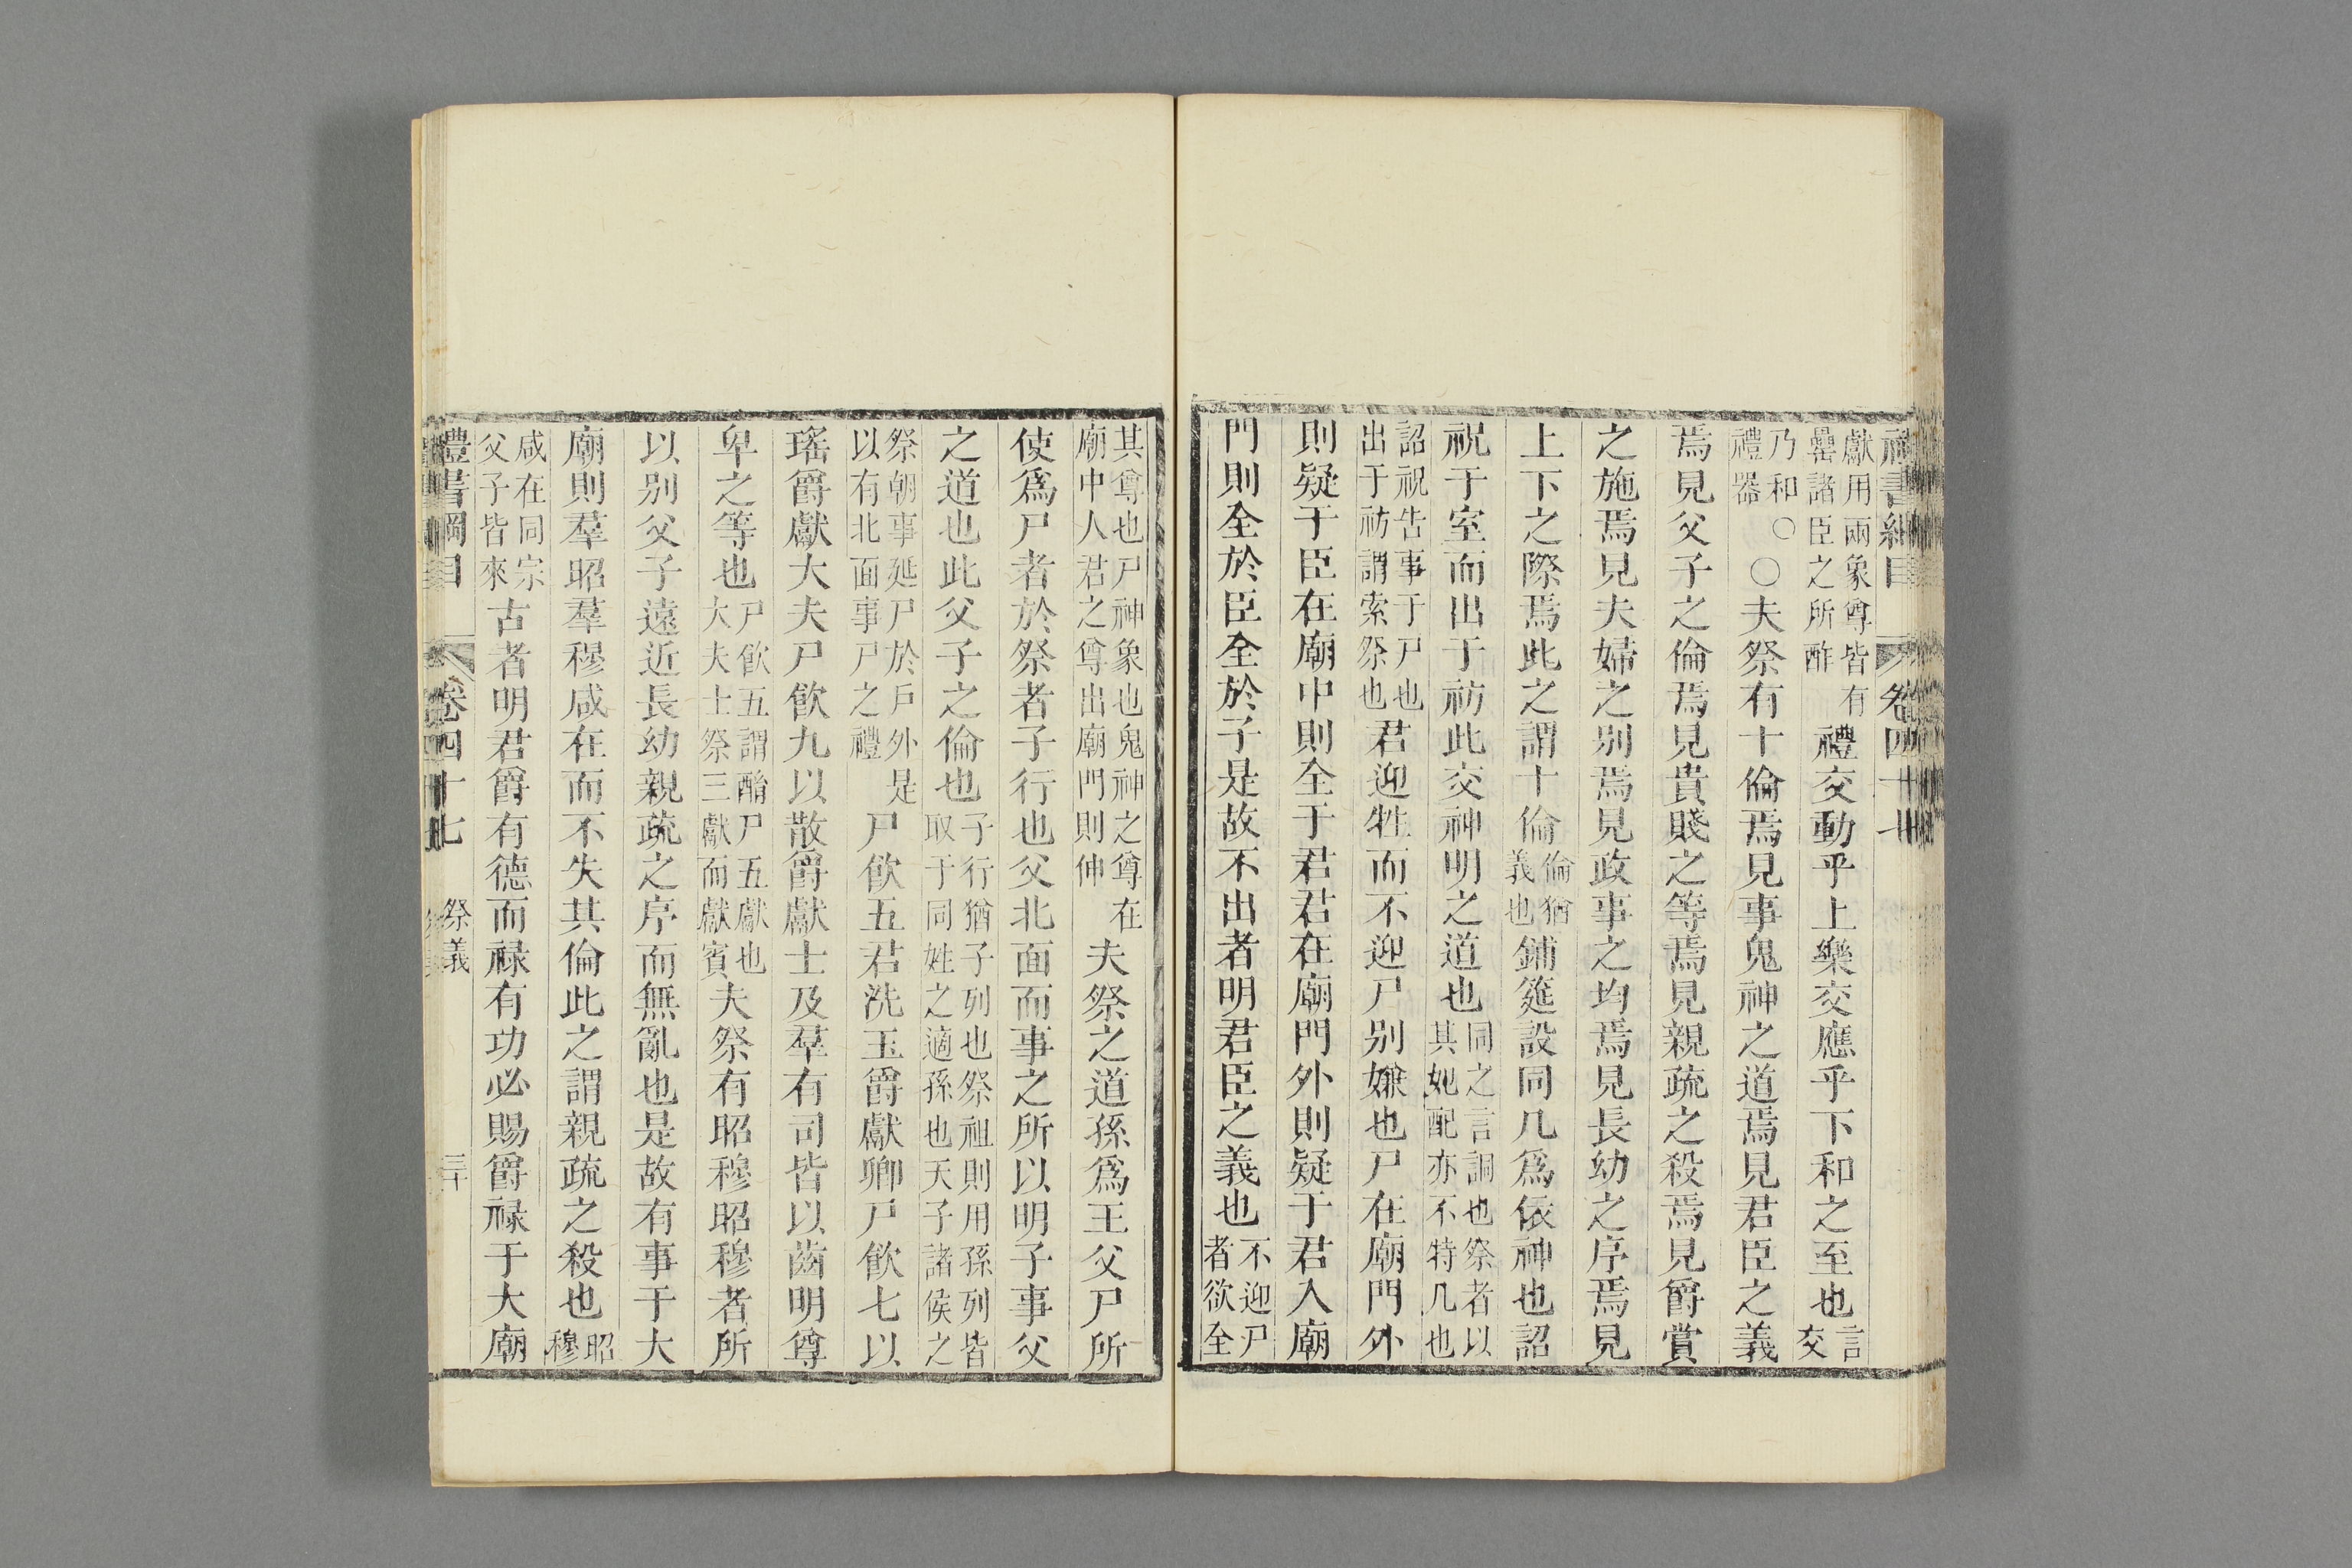 禮書綱目 卷四十七
獻用兩象尊皆有罍諸臣之所酢禮交動乎上樂交應乎下和之至也言交
乃和○禮器○夫祭有十倫焉見事鬼神之道焉見君臣之義
焉見父子之倫焉見貴賤之等焉見親疏之殺焉見爵賞
之施焉見夫婦之别焉見政事之均焉見長幼之序焉見
上下之際焉此之謂十倫倫猶義也鋪筵設同几爲依神也詔
祝于室而出于祊此交神明之道也同之言詷也祭者以其妃配亦不特几也
詔祝告事于尸也出于祊謂索祭也君迎牲而不迎尸别嫌也尸在廟門外
則疑于臣在廟中則全于君君在廟門外則疑于君入廟
門則全於臣全於子是故不出者明君臣之義也不迎尸者欲全
其尊也尸神象也鬼神之尊在廟中人君之尊出廟門則伸夫祭之道孫爲王父尸所
使爲尸者於祭者子行也父北面而事之所以明子事父
之道也此父子之倫也子行猶子列也祭祖則用孫列皆取于同姓之適孫也天子諸侯之
祭朝事延尸於戶外是以有北面事尸之禮尸飮五君洗玉爵獻卿尸飮七以
瑤爵獻大夫尸飮九以散爵獻士及羣有司皆以齒明尊
卑之等也尸飮五謂酳尸五獻也大夫士祭三獻而獻賓夫祭有昭穆昭穆者所
以别父子遠近長幼親疏之序而無亂也是故有事于大
廟則羣昭羣穆咸在而不失其倫此之謂親疏之殺也昭穆
咸在同宗父子皆來古者明君爵有德而祿有功必賜爵祿于大廟
禮書綱目 卷四十七 祭義 三十